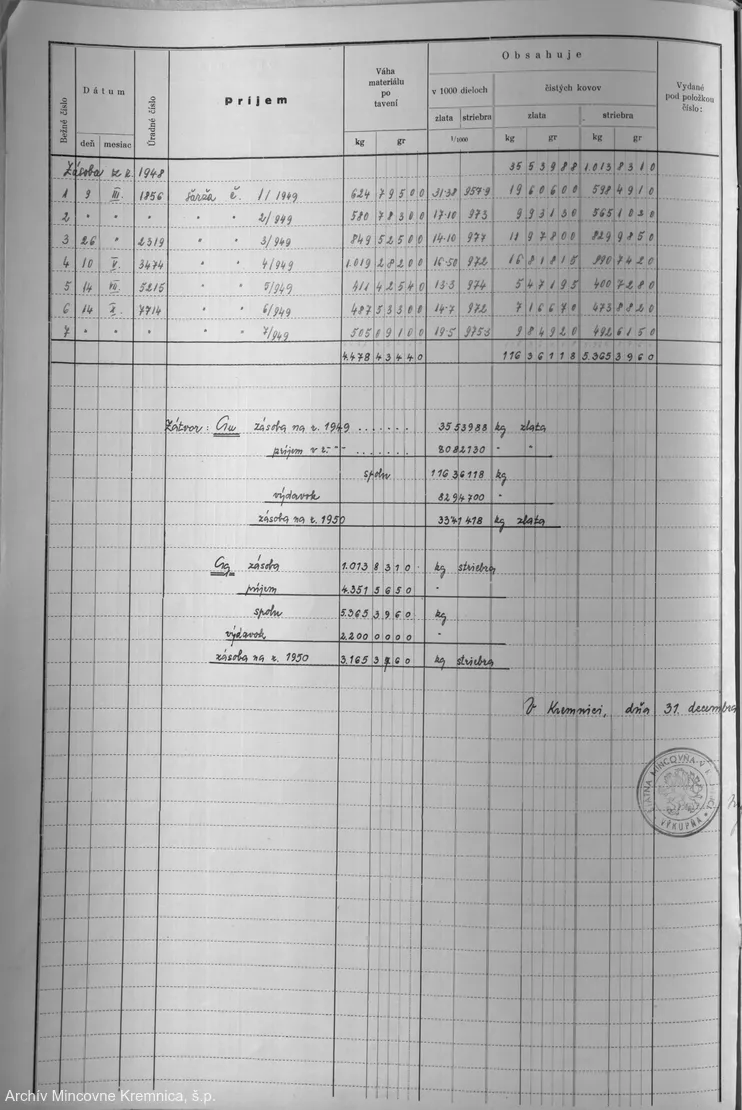 Obsahuje
Bežné číslo Dátum Úradné číslo Príjem Váha materiálu po tavení v 1000 dieloch čistých kovov Vydané pod položkou číslo:
deň mesiac zlata striebra zlata striebra
kg gr 1/1000 kg gr kg gr
Zásoba z r. 1948 35 53988 1.013 8310
1 9 III. 1856 šarža č. 1/1949 624 79500 31·38 957·9 19 60600 598 4910
2 " " " " 2/949 580 78300 17·10 973 9 93130 565 1030
3 26 " 2319 " " 3/949 849 52500 14·10 977 11 97800 829 9850
4 10 V. 3474 " " 4/949 1.019 28200 16·50 972 16 81815 990 7420
5 14 VII. 5215 " " 5/949 411 42540 13·3 974 5 47195 400 7280
6 14 X. 7714 " " 6/949 487 53300 14·7 972 7 16670 473 8820
7 " " " " 7/949 505 09100 19·5 975·3 9 84920 492 6150
4.478 43440 116 36118 5.365 3960
Zátvor: Au zásoba na r. 1949 ....... 35 53988 kg zlata
príjem v r. " " ....... 80 82130 " "
spolu 116 36118 kg
výdavok 82 94700 "
zásoba na r. 1950 33 41418 kg zlata
Ag zásoba 1.013 8310 kg striebra
príjem 4.351 5650 "
spolu 5.365 3960 kg
výdavok 2.200 0000 "
zásoba na r. 1950 3.165 3960 kg striebra
V Kremnici, dňa 31. decembra
ŠTÁTNA MINCOVŇA V KREMNICI
VÝKUPŇA
Archív Mincovne Kremnica, š.p.